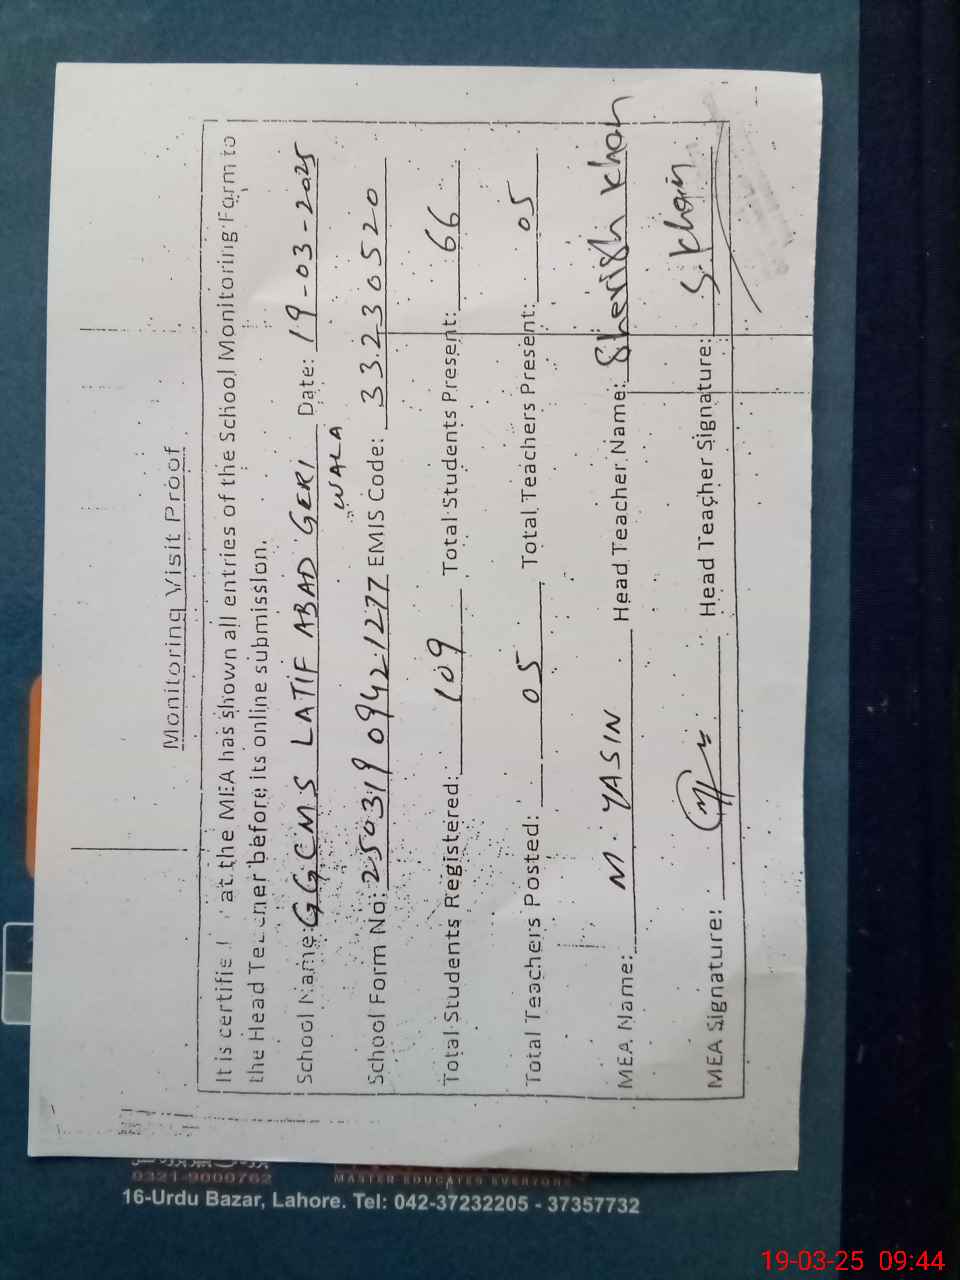 Monitoring Visit Proof
It is certifie at the MEA has shown all entries of the School Monitoring Form to
the Head Teacher before its online submission.
School Name: GGCMS LATIF ABAD GERI WALA Date: 19-03-2025
School Form No: 250319 0942 1277 EMIS Code: 33230520
Total Students Registered: 109 Total Students Present: 66
Total Teachers Posted: 05 Total Teachers Present: 05
MEA Name: M. YASIN Head Teacher Name: Sherish Khan
MEA Signature: Head Teacher Signature: S. Khan
0321-9000762
MASTER EDUCATES EVERYONE
16-Urdu Bazar, Lahore. Tel: 042-37232205 - 37357732
19-03-25 09:44